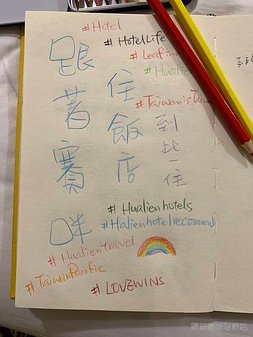 #Hotel
#HotelLife
#Leafin
#Hualie
#TaiwanisTa
跟著賽咪
住飯店
到此一住
#Hualienhotels
#Hualienhotelrecommend
#Hualientravel
#TaiwanPacific
#LOVEWINS
跟著賽咪住飯店